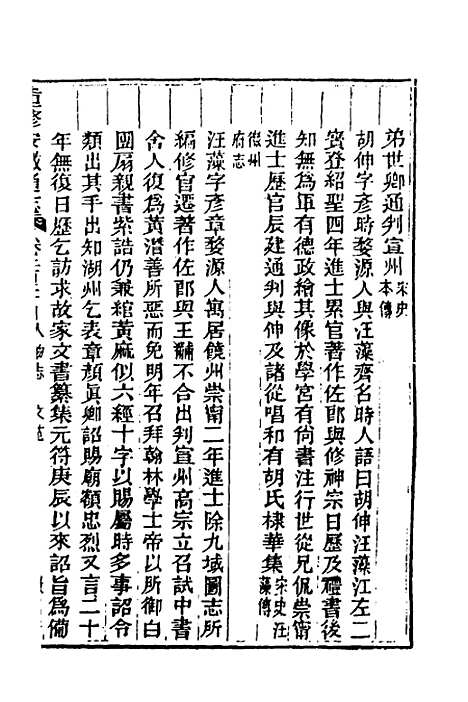 弟世卿通判宣州宋史本傳
胡伸字彥時婺源人與汪藻齊名時人語曰胡伸汪藻江左二
寶登紹聖四年進士累官著作佐郎與修神宗日歷及禮書後
知無為軍有德政繪其像於學宮有尚書注行世從兄侃崇甯
進士歷官辰建通判與伸及諸從唱和有胡氏棣華集宋史汪藻傳
徽州府志
汪藻字彥章婺源人寓居饒州崇甯二年進士除九域圖志所
編修官遷著作佐郎與王黼不合出判宣州高宗立召試中書
舍人復為黃潛善所惡而免明年召拜翰林學士帝以所御白
團扇親書紫誥仍兼綰黃麻似六經十字以賜屬時多事詔令
類出其手出知湖州乞表章顏真卿詔賜廟額忠烈又言二十
年無復日歷乞訪求故家文書纂集元符庚辰以來詔旨為備
重修安徽通志 人物志 文苑